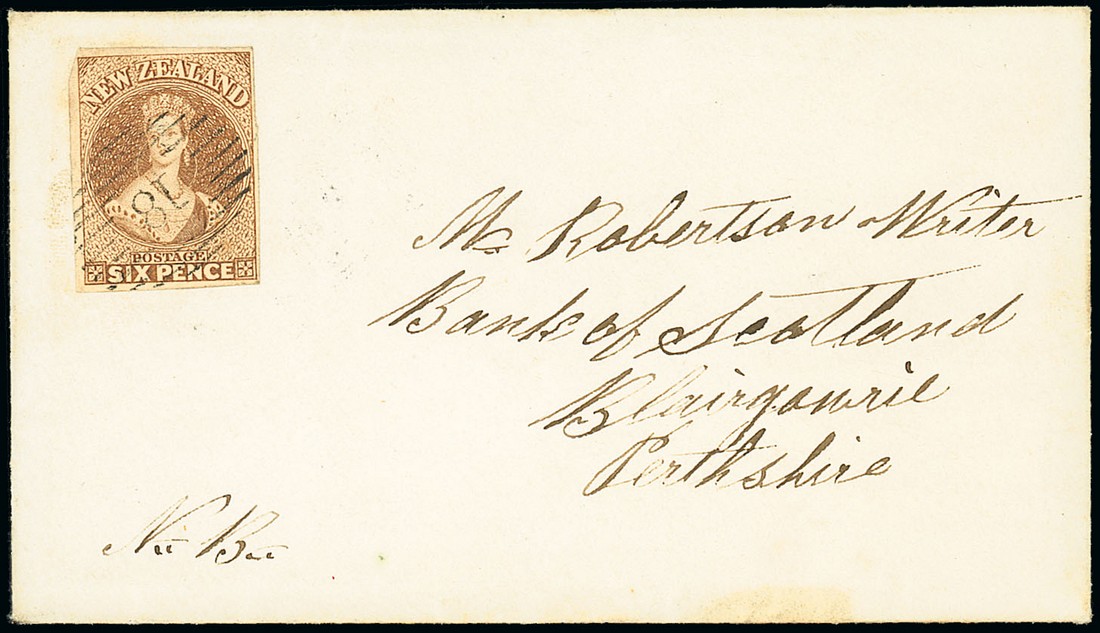 NEW ZEALAND
POSTAGE
SIX PENCE
18
Mr Robertson Writer
Bank of Scotland
Blairgowrie
Perthshire
N.. B..